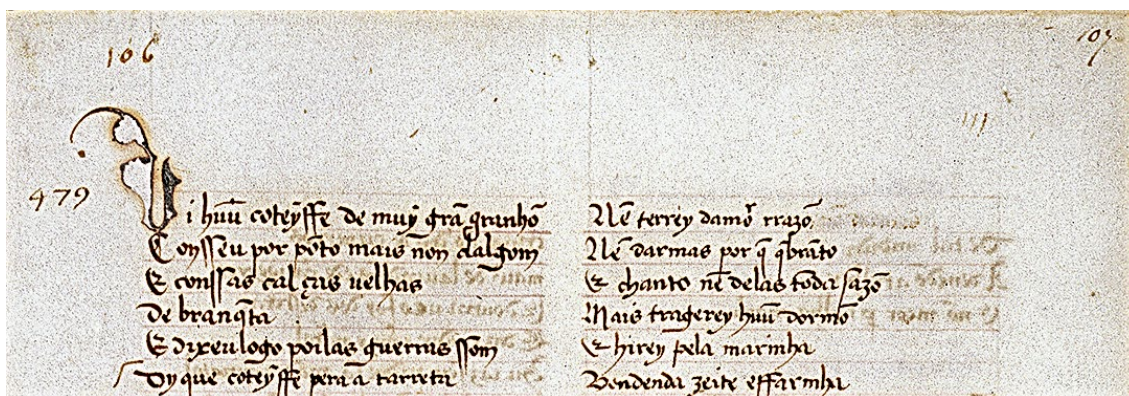 106
107
479
Vi huũ coteyffe de muỹ grã granhõ
Consseu por põto mais non dalgom
E conssas calças uelhas
De branq̃ta
E dixeulogo poilas guerras ssom
Oy que coteyffe pera a carreta
Nẽ terrey damor̃ rrazõ
Nẽ darmas por q̃ q̃brãto
E chanto nẽ delas toda sazõ
Mais tragerey huũ dormõ
E hirey pela marinha
Vendenda zeite effarinha